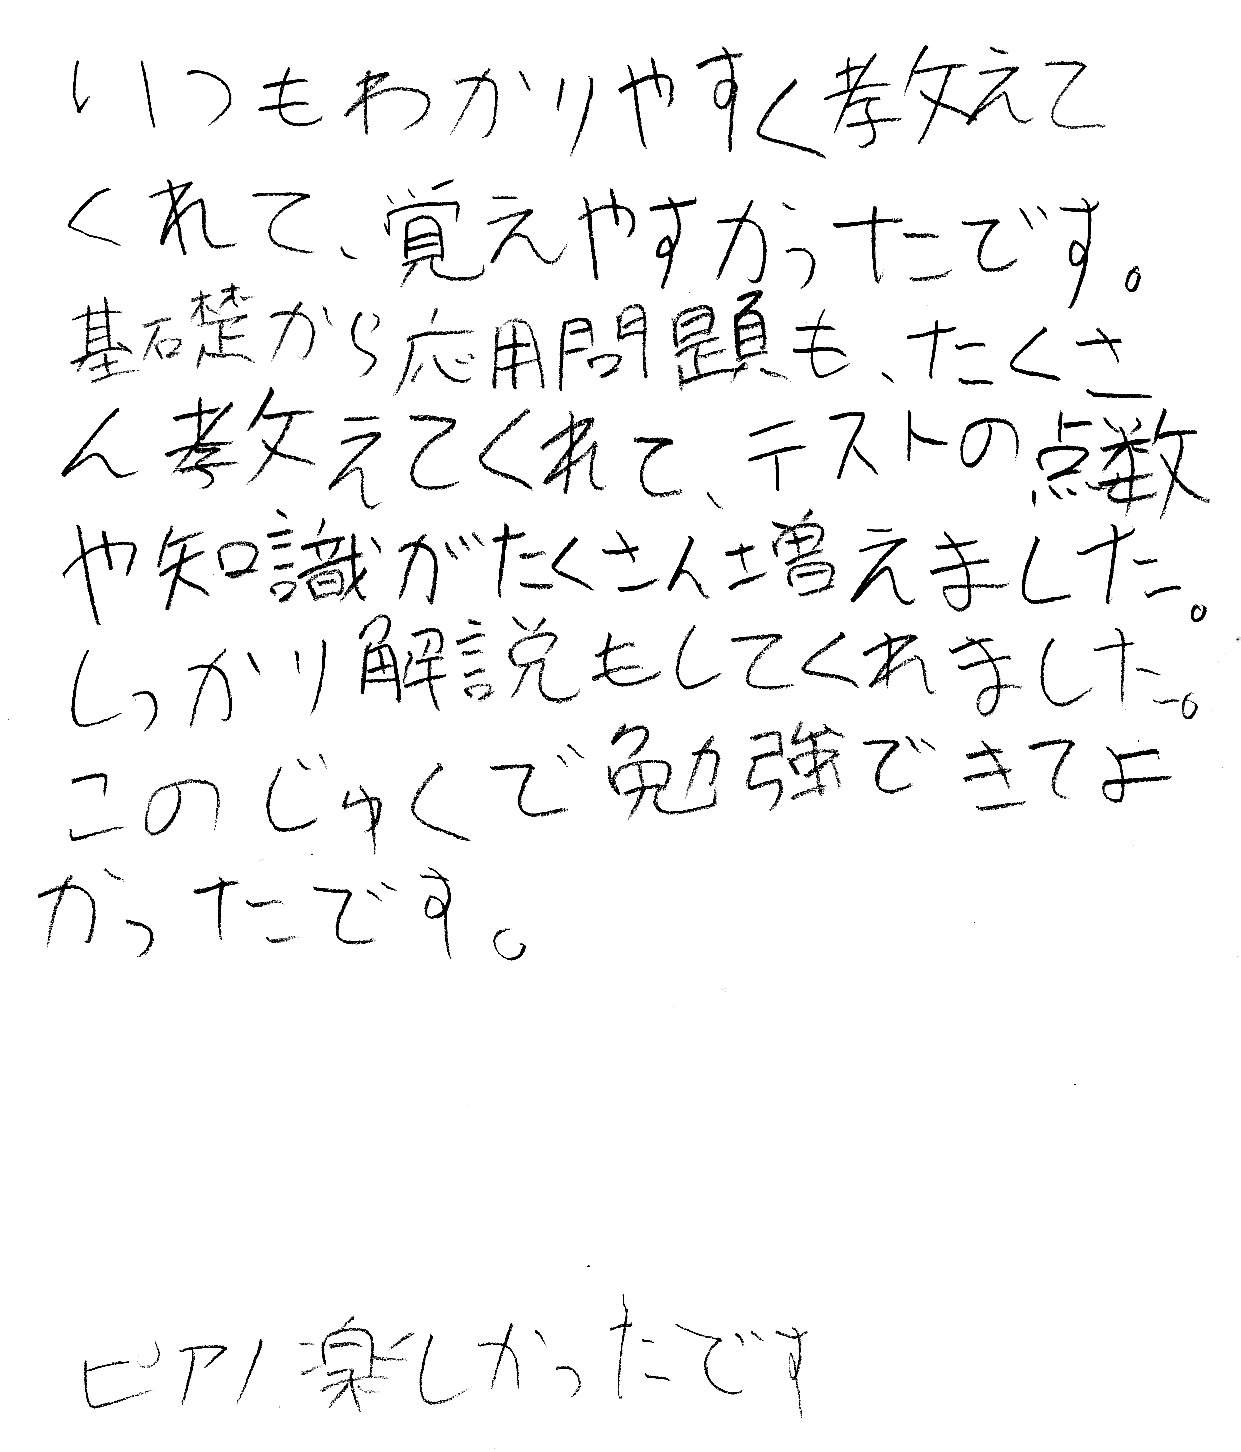 いつもわかりやすく教えて
くれて、覚えやすかったです。
基礎から応用問題も、たくさ
ん教えてくれて、テストの点数
や知識がたくさん増えました。
しっかり解説もしてくれました。
このじゅくで勉強できてよ
かったです。
ピアノ楽しかったです